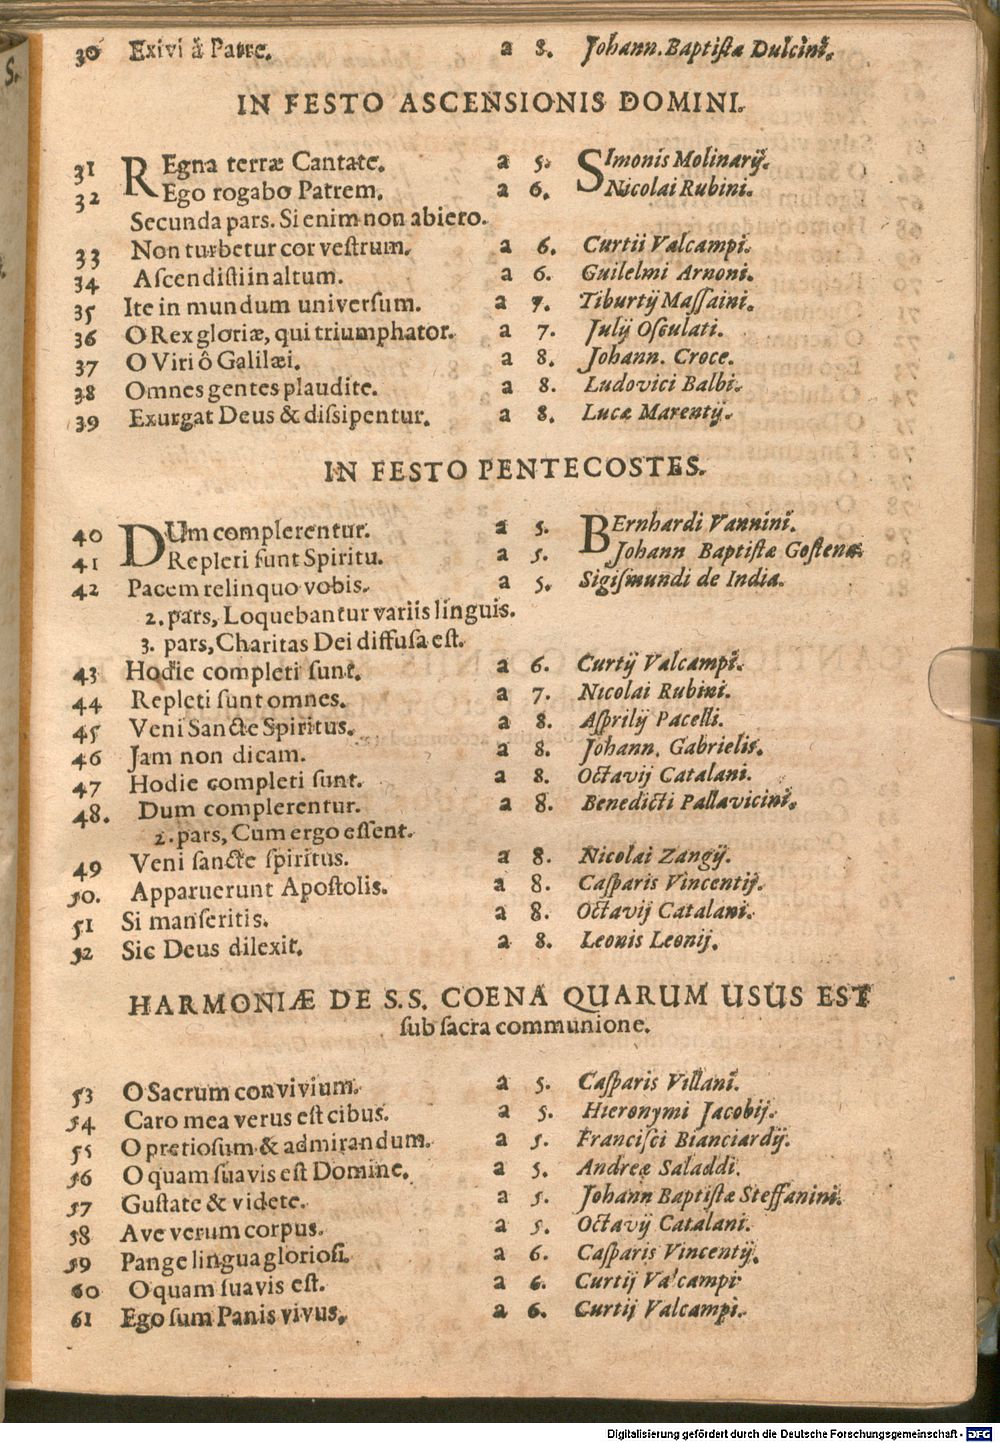 30 Exivi â Patre. a 8. Johann. Baptiſtæ Dulcini.
IN FESTO ASCENSIONIS DOMINI.
31 REgna terræ Cantate. a 5. SImonis Molinarij.
32 Ego rogabo Patrem. a 6. Nicolai Rubini.
Secunda pars. Si enim non abiero.
33 Non turbetur cor veſtrum. a 6. Curtii Valcampi.
34 Aſcendiſti in altum. a 6. Guilelmi Arnoni.
35 Ite in mundum univerſum. a 7. Tiburtij Maſſaini.
36 O Rex gloriæ, qui triumphator. a 7. Julij Oſculati.
37 O Viri ô Galilæi. a 8. Johann. Croce.
38 Omnes gentes plaudite. a 8. Ludovici Balbi.
39 Exurgat Deus & diſsipentur. a 8. Lucæ Marentij.
IN FESTO PENTECOSTES.
40 DUm complerentur. a 5. BErnhardi Vannini.
41 Repleti ſunt Spiritu. a 5. Johann Baptiſtæ Goſtenæ.
42 Pacem relinquo vobis. a 5. Sigiſmundi de India.
2. pars, Loquebantur variis linguis.
3. pars, Charitas Dei diffuſa eſt.
43 Hodie completi ſunt. a 6. Curtij Valcampi.
44 Repleti ſunt omnes. a 7. Nicolai Rubini.
45 Veni Sancte Spiritus. a 8. Aſprilij Pacelli.
46 Jam non dicam. a 8. Johann. Gabrielis.
47 Hodie completi ſunt. a 8. Octavij Catalani.
48. Dum complerentur. a 8. Benedicti Pallavicini.
2. pars, Cum ergo eſſent.
49 Veni ſancte ſpiritus. a 8. Nicolai Zangij.
50. Apparuerunt Apoſtolis. a 8. Caſparis Vincentij.
51 Si manſeritis. a 8. Octavij Catalani.
52 Sic Deus dilexit. a 8. Leonis Leonij.
HARMONIÆ DE S.S. COENA QUARUM USUS EST
ſub ſacra communione.
53 O Sacrum convivium. a 5. Caſparis Villani.
54 Caro mea verus eſt cibus. a 5. Hieronymi Jacobij.
55 O pretioſum & admirandum. a 5. Franciſci Bianciardij.
56 O quam ſuavis eſt Domine. a 5. Andreæ Saladdi.
57 Guſtate & videte. a 5. Johann Baptiſtæ Steffanini.
58 Ave verum corpus. a 5. Octavij Catalani.
59 Pange lingua glorioſi. a 6. Caſparis Vincentij.
60 O quam ſuavis eſt. a 6. Curtij Valcampi
61 Ego ſum Panis vivus. a 6. Curtij Valcampi.
Digitalisierung gefördert durch die Deutsche Forschungsgemeinschaft - DFG